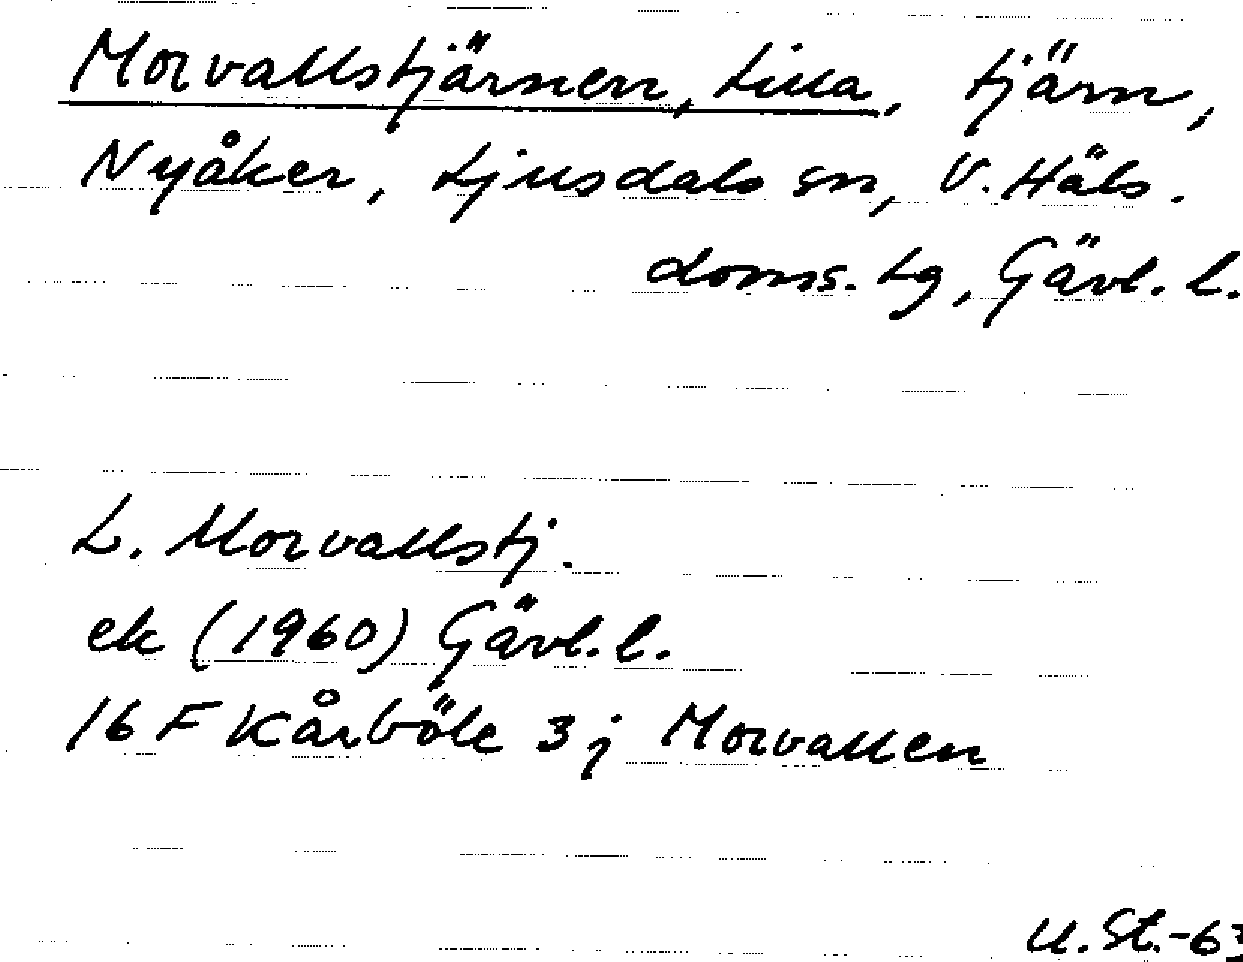 Morvallstjärnen, Lilla, tjärn,
Nyåker, Ljusdals sn, V. Häls.
doms. lg, Gävl. l.
L. Morvallstj.
ek (1960) Gävl. l.
16 F Kårböle 3 j Morvallen
U. St. -63